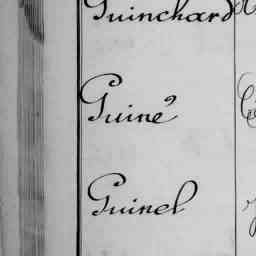 Guinchard
Guiné
Guinel